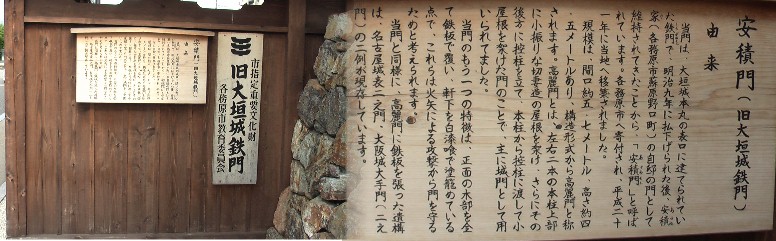 市指定重要文化財
旧大垣城鉄門
各務原市教育委員会
安積門(旧大垣城鉄門)
由来
当門は、大垣城本丸の表口に建てられてい
た鉄門で、明治九年に払下げられた後、安積
家(各務原市蘇原野口町)の自邸の門として
維持されてきたことから、「安積門」と呼ば
れています。各務原市へ寄付され、平成二十
一年に当地へ移築されました。
現規模は、間口約五・七メートル、高さ約四
・五メートルあり、構造形式から高麗門と称
されます。高麗門とは、左右二本の本柱上部
に小振りな切妻造の屋根を架け、さらにその
後方に控柱を立て、本柱から控柱に渡して小
屋根を架けた門のことで、主に城門として用
いられてました。
当門のもう一つの特徴は、正面の木部を全
て鉄板で覆い、軒下を白漆喰で塗籠めている
点で、これらは火矢による攻撃から門を守る
ためと考えられます。
当門と同様に、高麗門に鉄板を張った遺構
は、名古屋城表二之門、大阪城大手門(二え
門)の二例が現存しています。